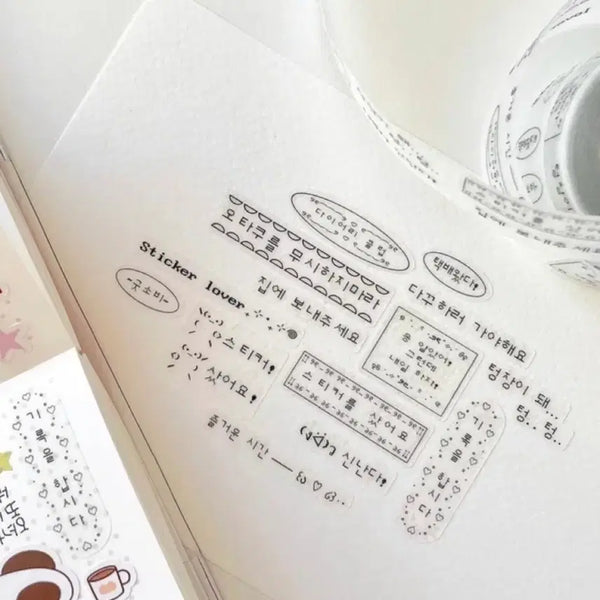 다이어리 클럽
오타쿠를 무시하지마라
택배왔다!
Sticker lover
집에 보내주세요
다꾸하러 가야해요
굿소비
스티커!
샀어요!
응 알았어!
그런데
내일 하지!
텅장이 돼..
텅.. 텅..
스티커를 샀어요
기록을 합시다
신난다!
즐거운 시간
기록을 합시다